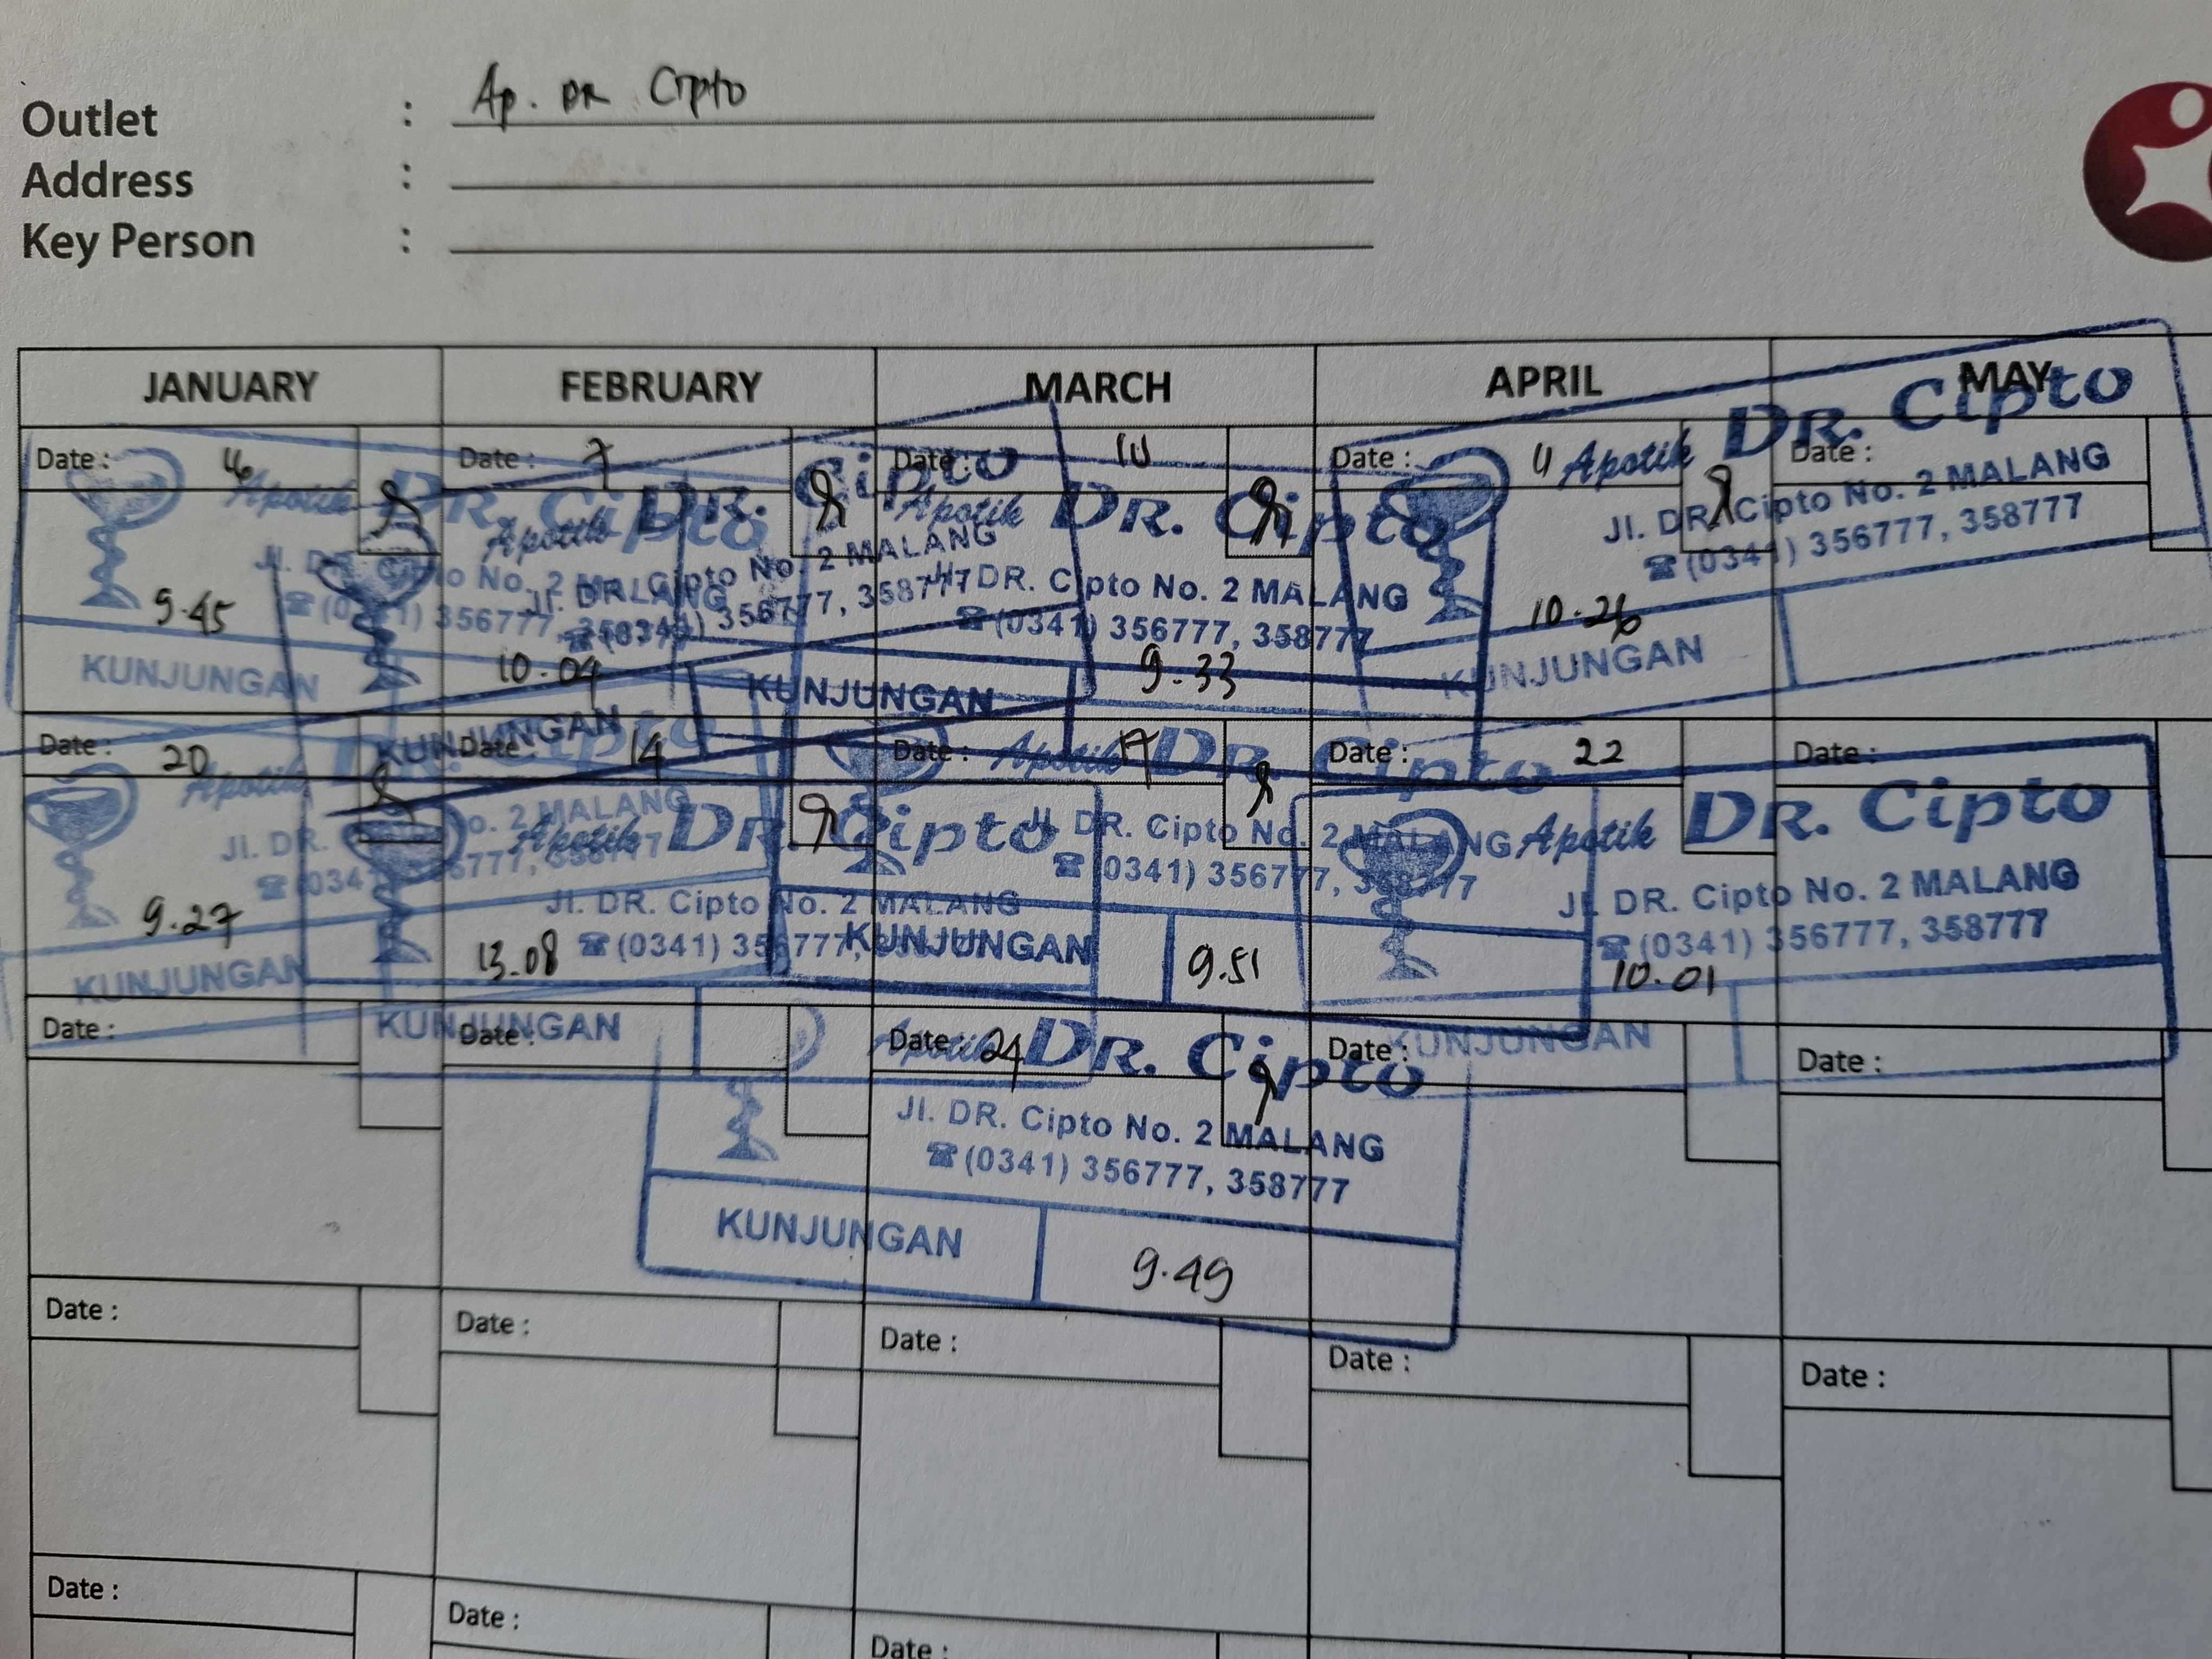 Outlet : Ap. DR Cipto
Address :
Key Person :
JANUARY FEBRUARY MARCH APRIL MAY
Date : Date : 7 Date : 10 Date : Date :
Apotik DR. Cipto
Apotik DR. Cipto
Apotik DR. Cipto
Jl. DR. Cipto No. 2 MALANG
☎ (0341) 356777, 358777
Apotik DR. Cipto
Jl. DR. Cipto No. 2 MALANG
☎ (0341) 356777, 358777
9.45 10.04 9.33 10.26
KUNJUNGAN KUNJUNGAN KUNJUNGAN KUNJUNGAN
Date : 20 Date : 14 Date : 17 Date : 22 Date :
Apotik DR. Cipto
Jl. DR. Cipto No. 2 MALANG
☎ (0341) 356777, 358777
Apotik DR. Cipto
Jl. DR. Cipto No. 2 MALANG
☎ (0341) 356777, 358777
Apotik DR. Cipto
Jl. DR. Cipto No. 2 MALANG
☎ (0341) 356777, 358777
9.27 13.08 9.51 10.01
KUNJUNGAN KUNJUNGAN KUNJUNGAN KUNJUNGAN
Date : Date : Date : 24 Date : Date :
Apotik DR. Cipto
Jl. DR. Cipto No. 2 MALANG
☎ (0341) 356777, 358777
KUNJUNGAN 9.49
Date : Date : Date : Date : Date :
Date : Date : Date :